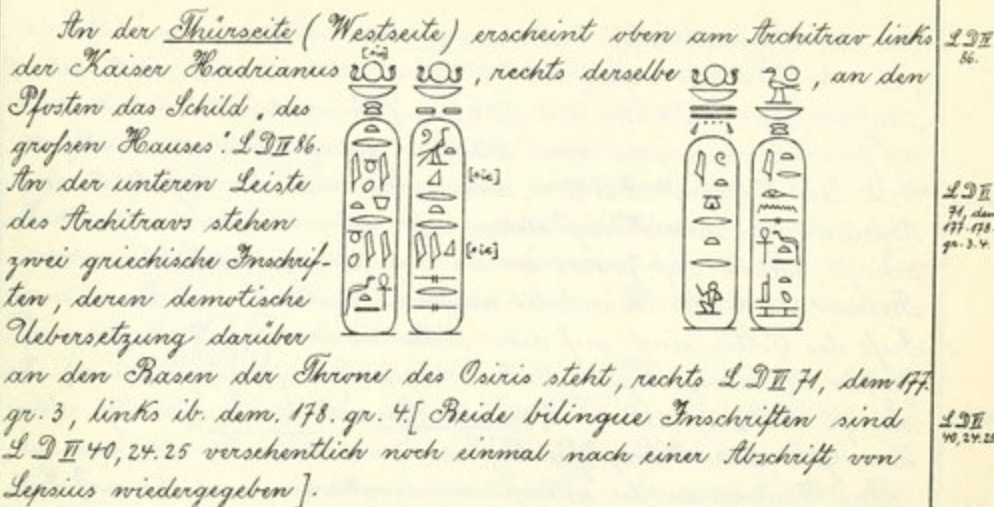 An der Thürseite (Westseite) erscheint oben am Architrav links
[sic]
der Kaiser Hadrianus , rechts derselbe , an den
Pfosten das Schild „des
großen Hauses“: LD IV 86.
An der unteren Leiste [sic]
des Architravs stehen
zwei griechische Inschrif- [sic]
ten, deren demotische
Uebersetzung darüber
an den Basen der Throne des Osiris steht, rechts LD VI 71, dem 177.
gr. 3, links ib. dem. 178. gr. 4. [Beide bilingue Inschriften sind
LD VI 40, 24.25 versehentlich noch einmal nach einer Abschrift von
Lepsius wiedergegeben].
LD IV
86.
LD VI
71, dem
177. 178.
gr. 3. 4.
LD VI
40, 24.25